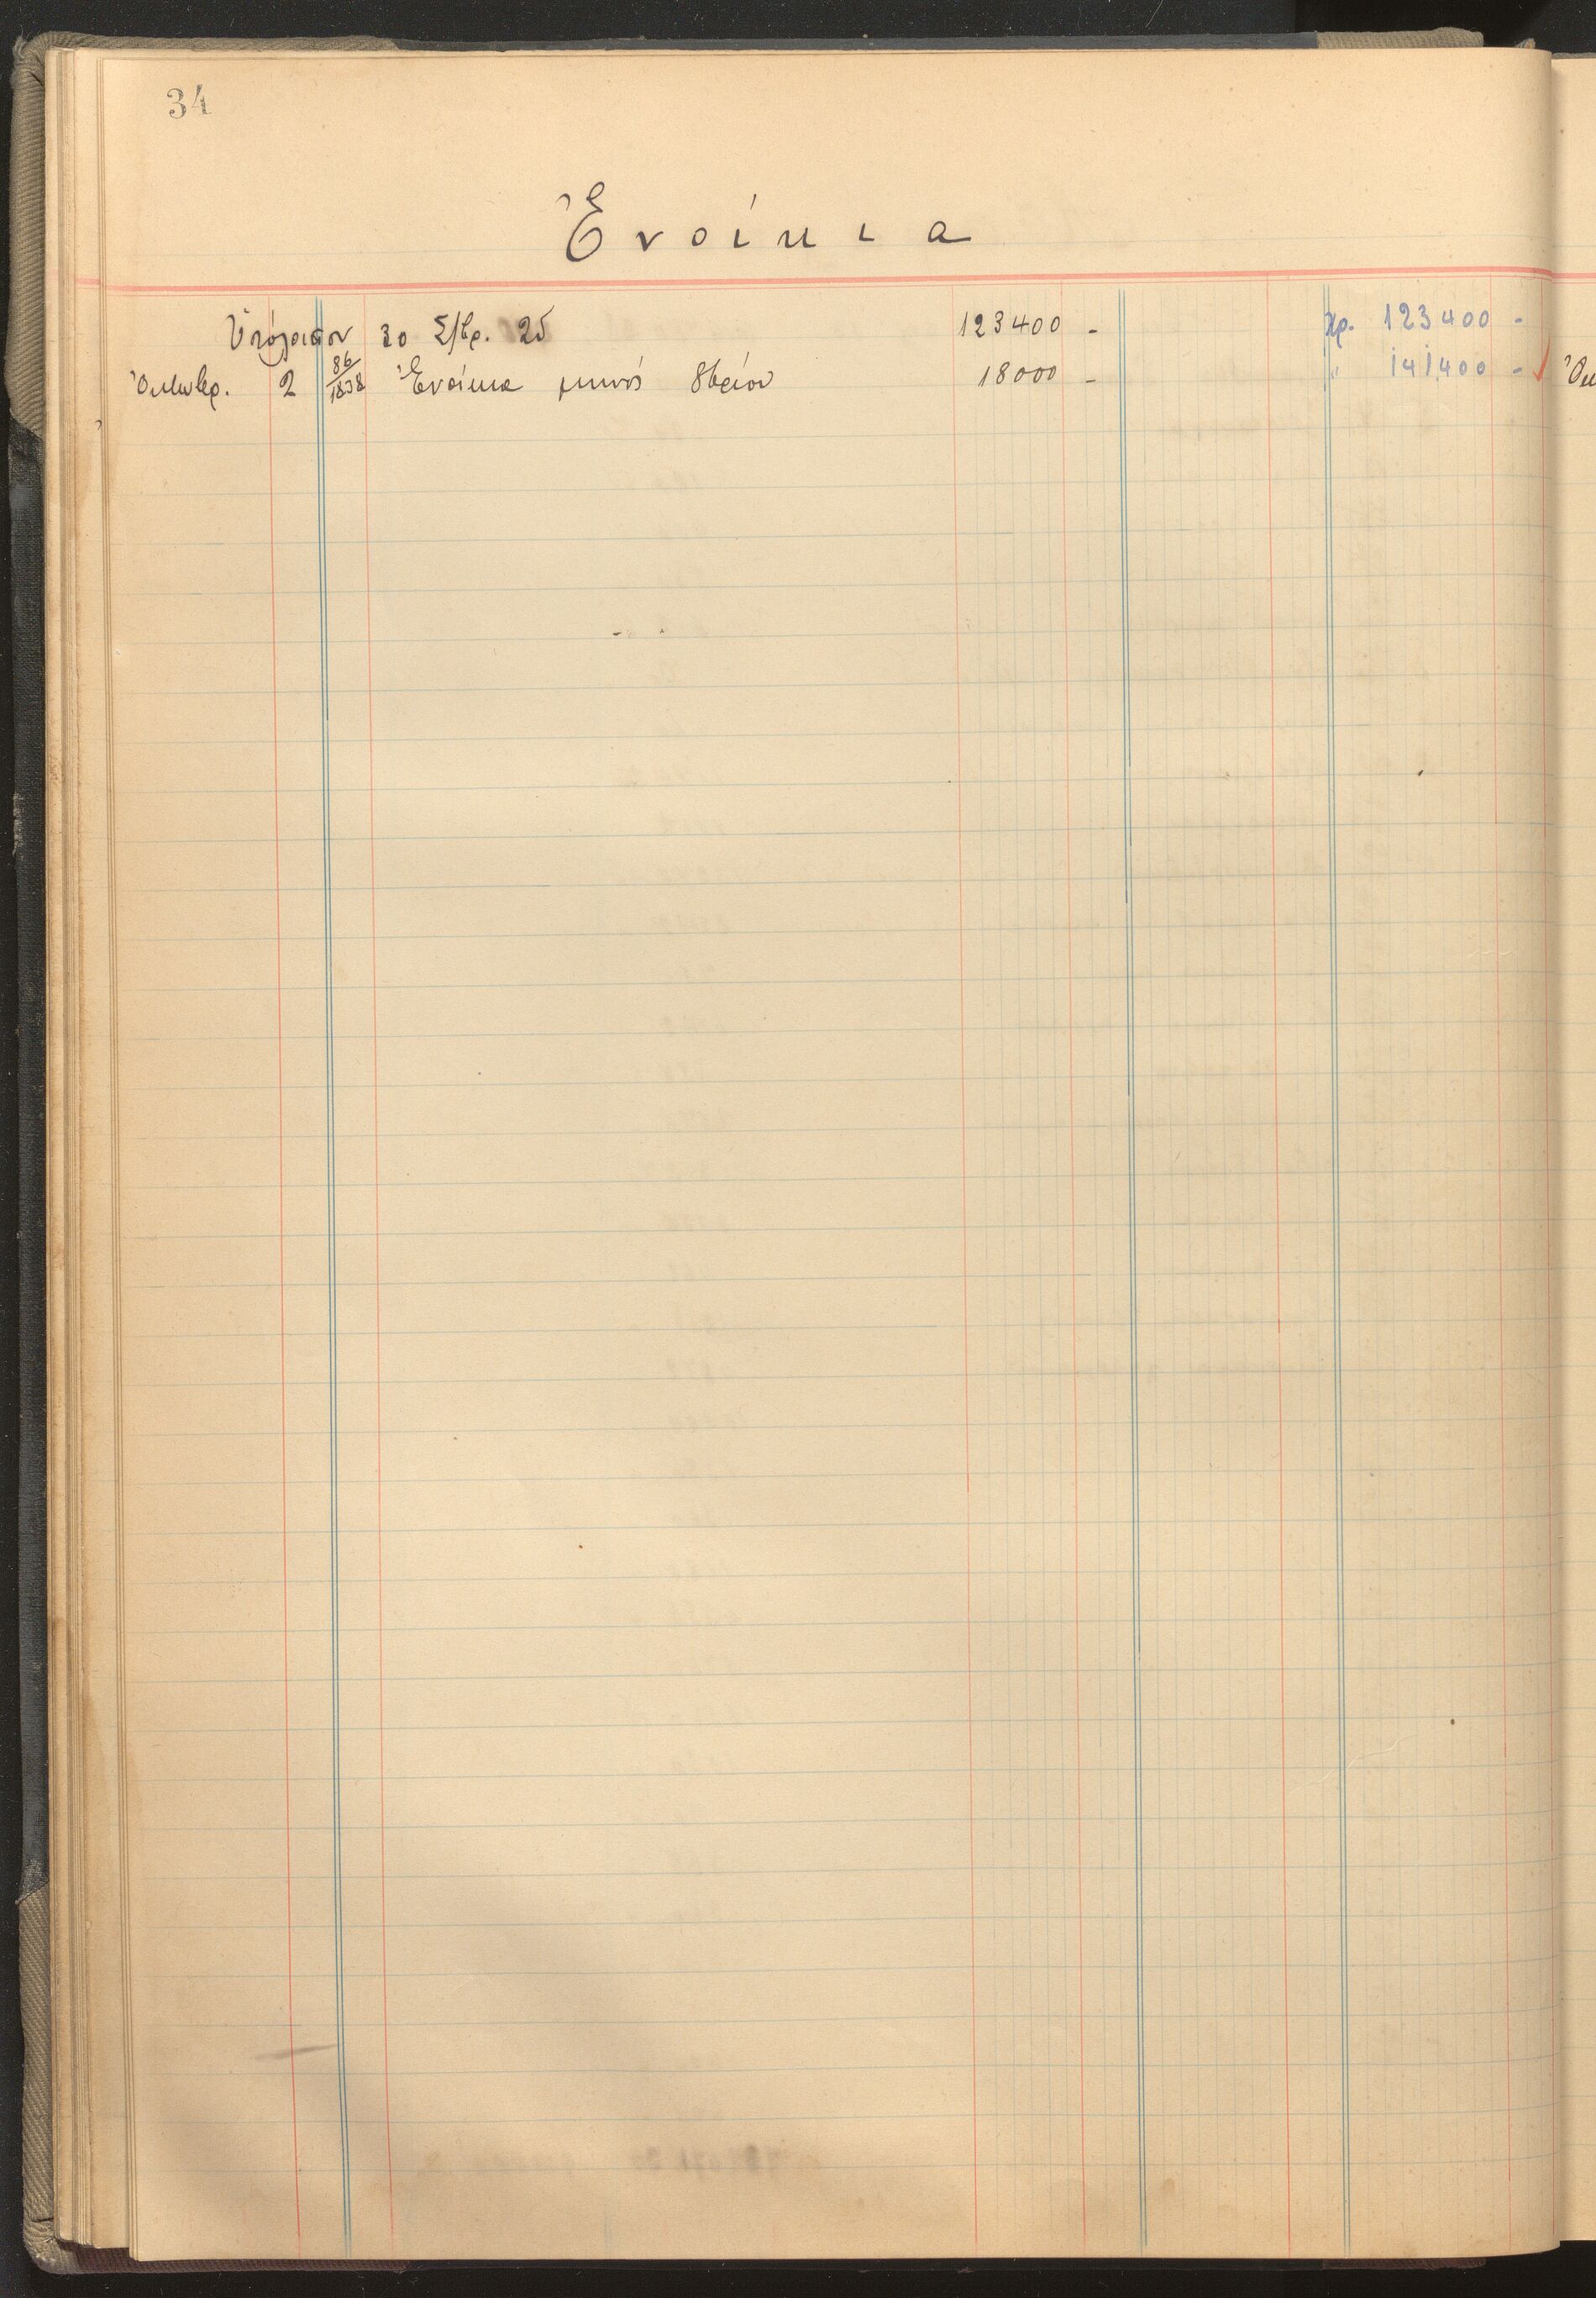 34
Ἐνοίκια
Ὑπόλοιπον 30 Σ/βρ. 25 123400 - Χρ. 123400 -
Ὀκτωβρ. 2 86/1838 Ἐνοίκια μηνός 8βρίου 18000 - " 141400 -